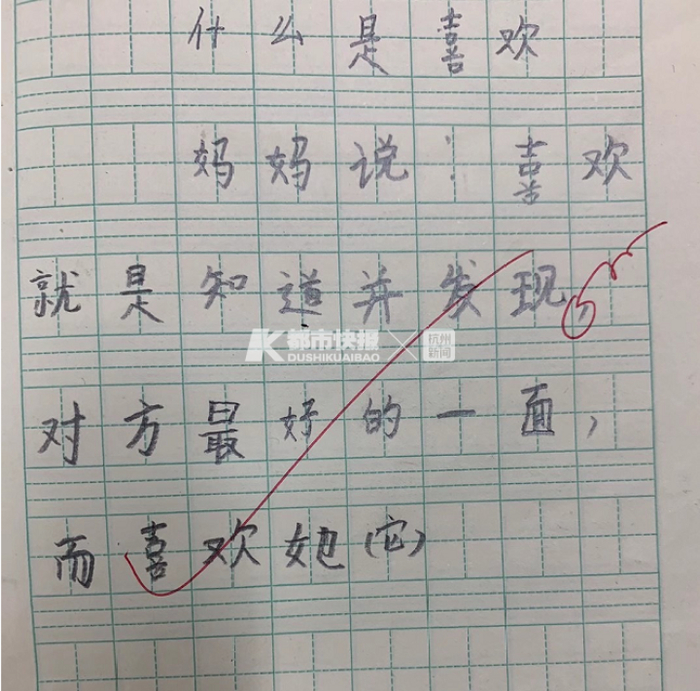 什么是喜欢
妈妈说：喜欢
就是知道并发现，
都市快报 杭州新闻
DUSHIKUAIBAO
对方最好的一面，
而喜欢她（它）